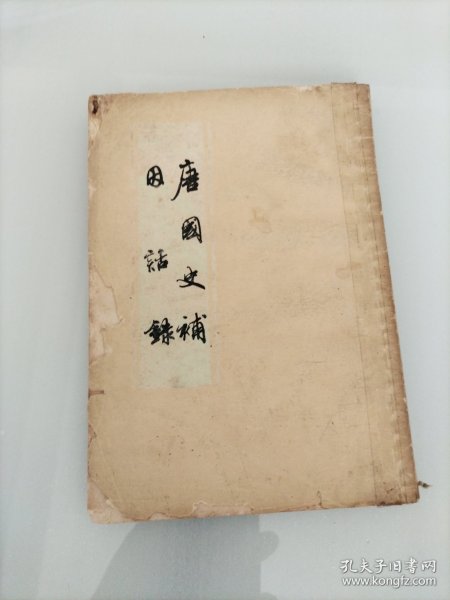 唐國史補
因話錄
孔夫子旧书网
www.kongfz.com